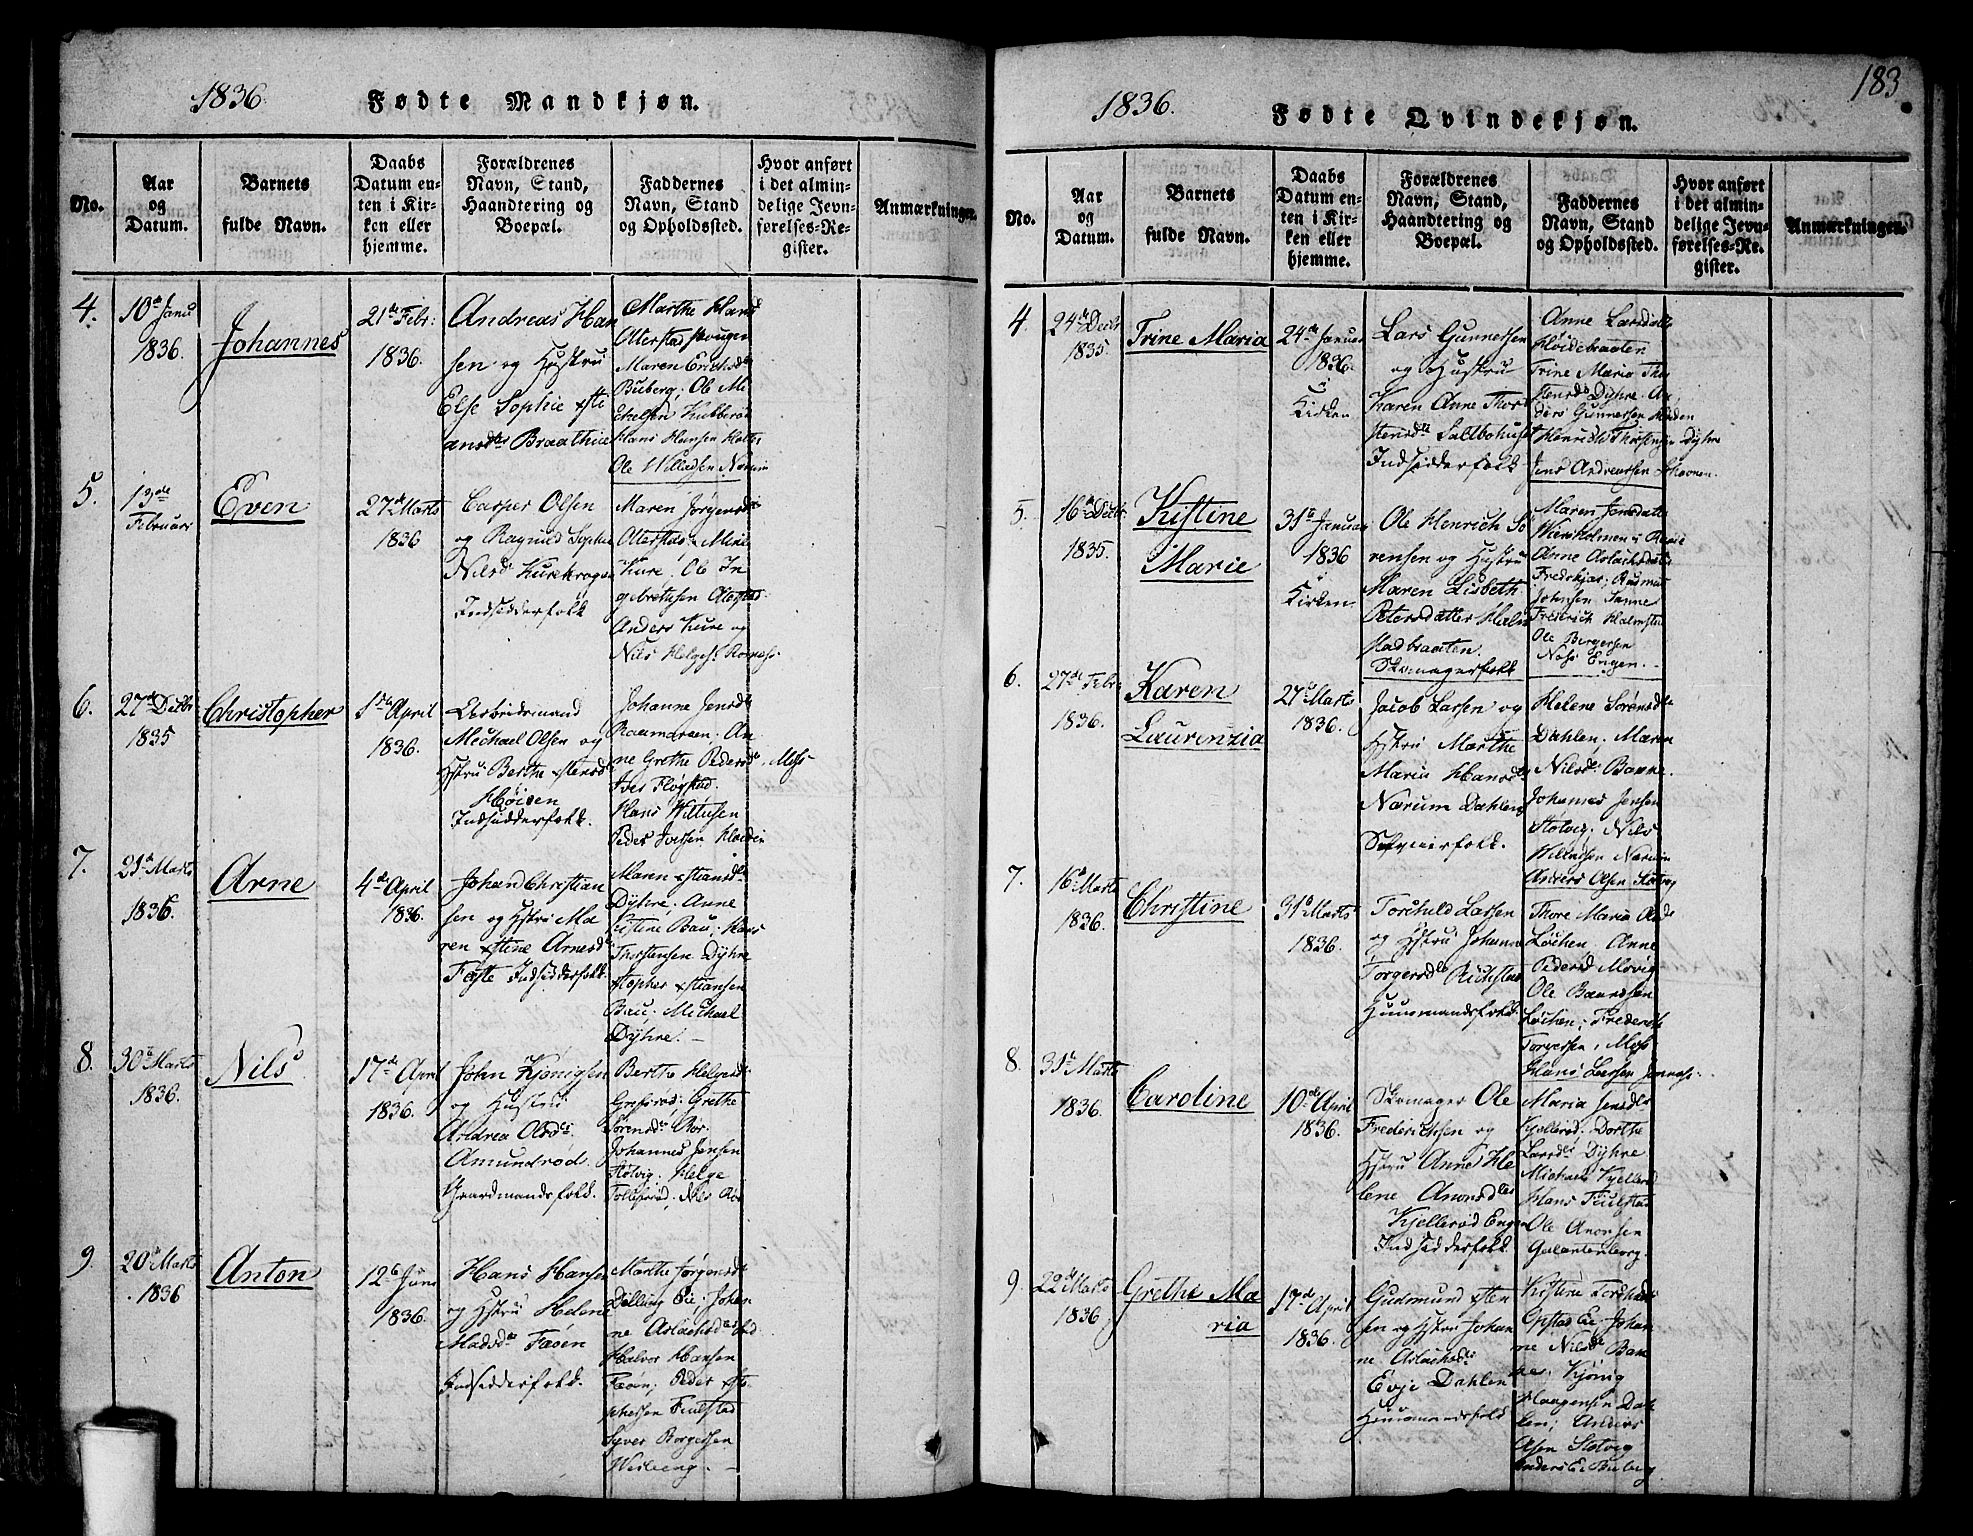 1836. Fødte Mandkjøn.
No.
Aar
og
Datum.
Barnets
fulde Navn.
Daabs
Datum en-
ten i Kir-
ken eller
hjemme.
Forældrenes
Navn, Stand,
Haandtering og
Boepæl.
Faddernes
Navn, Stand
og Opholdssted.
Hvor anført
i det almin-
delige Jevn-
førelses-Re-
gister.
Anmærkninger.
4.
10de Janu
1836.
Johannes
21de Febr:
1836.
Andreas Han
sen og Hustru
Else Sophie Xsti
ansdr Braathue
Marthe Hans
Oterstad
Maren Erichsdr
Buberg; Ole Mi
chelsen Kubberød
Hans Hansen
Ole Willadsen Nærum
5.
Februari
Even
27de Marts
1836
Casper Olsen
og Ragnild Sophie
Nilsdr Kurekrogen
Indsidderfolk
Maren Jørgensdr
Oterstad
Kure; Ole In
gebretsen Oterstad
Anders Kure og
Nils Helges.
6.
27de Decbr
1835
Christopher
1ste April
1836.
Michael Olsen og
Hstru Berthe Xstensdr
Høiden
Indsidderfolk.
Johanne Jensdr
Raamarsen. An
ne Grethe Pedersdr. Moss
Iver Fløgstad.
Hans Willusen
Peder Iversen
7.
21de Marts
1836.
Arne
4de April
1836.
Johan Christian
sen og Hstru Ma
ren Xstine Arnesdr
Feste Indsidderfolk.
Maren Xstiansdr
Dÿhre. Anne
Kistine Bau; Hans
Thorstensen Dÿhre
Xstopher Xstiansen
Bau; Michael
Dÿhre. –
8.
30te Marts
1836.
Nils
17de April
1836.
John Kjønigsen
og Hustru
Andrea Olsdr.
Amundrød.
Gaardmandsfolk.
Berthe Helgesdr
Grefsrød; Grethe
Sørensdr Roer.
Johannes Jensen
Stølvig; Helge
Tollefsrød; Nils Roer
9
20de Marts
1836
Anton
12te Juni
1836.
Hans Hansen
og Hstru Helene
Madsdr Faøen
Indsidderfolk.
Marthe Jørgensdr
Dilling Eie; Johan
ne Aslachsdr
Halvor Hansen
Faøen; Peder Xsto
phersen Fiulstad
Syver Borgersen
Wesleeng. –
183
1836. Fødte Qvindekjøn.
No.
Aar
og
Datum.
Barnets
fulde Navn.
Daabs
Datum en-
ten i Kir-
ken eller
hjemme.
Forældrenes
Navn, Stand,
Haandtering og
Boepæl.
Faddernes
Navn, Stand
og Opholdssted.
Hvor anført
i det almin-
delige Jevn-
førelses-Re-
gister.
Anmærkninger.
4.
24de Decbr
1835.
Trine Maria
24de Januar
1836.
i
Kirken
Lars Gunnersen
og Hustru
Karen Anne Thor
stensdr Saltbohuset
Indsidderfolk
Anne Larsdatter
Fløidebraaten
Trine Maria Thor
stensdr Dÿhre. An
ders Gunnersen
Henrich Thorsensen Dÿhre
Jens Andreassen
5.
16de Decbr
1835.
Kistine
Marie
31te Januar
1836
i
Kirken
Ole Henrich Sø
rensen og Hustru
Maren Lisbeth
Petersdatter Halm
stadbraaten.
Skomagerfolk
Maren Jensdatter
Warsholmen i
Anne Aslachsdatter
Fredskjær; Rasmus
Johnsen Sanne
Frederich Halmstad
Ole Bergersen
Noes Engen.
6.
27de Febr:
1836.
Karen
Laurenzia
27de Marts
1836.
Jacob Larsen og
Hstru Marthe
Maria Hansdr
Nærum Dahlen
Helene Sørensdr
Dahlen. Maren
Nilsdr Banne.
Johannes Jensen
Stølvig; Nils
Willadsen Nærum
Anders Olsen Stølvig
7.
16de Marts
1836.
Christine
31te Marts
1836.
Torchild Larsen
og Hstru Johanne
Torgersdr Richstad
Huusmandsfolk.
Thore Maria
Løchen. Anne
Pedersd Mosvig
Ole Baardsen
Løchen; Frederich
Torgersen, Moss
Hans Larsen
8.
31te Marts
1836.
Caroline
10de April
1836.
Skomager Ole
Frederichsen og
Hstru Anne He
lene Anorsdr
Kjellerød Engen
Indsidderfolk.
Maria Jensdr
Kjellerød. Dorthe
Larsdr Dÿhre
Michael Kjellerød
Hans Fiulstad
Ole Anorsen
Galantenborg.
9.
22de Marts
1836
Grethe Ma
ria
17de April
1836.
Gudmund Xsten
sen og Hstru Johan
ne Aslachsdr
Evje Dahlen
Huusmandsfolk
Kistine Torchildsdr
Gipstad Eie. Johan
ne Nilsdr Ban
ne. Kjønig
Haagensen Dah
len; Anders
Olsen Stølvig
Anders E. Buberg